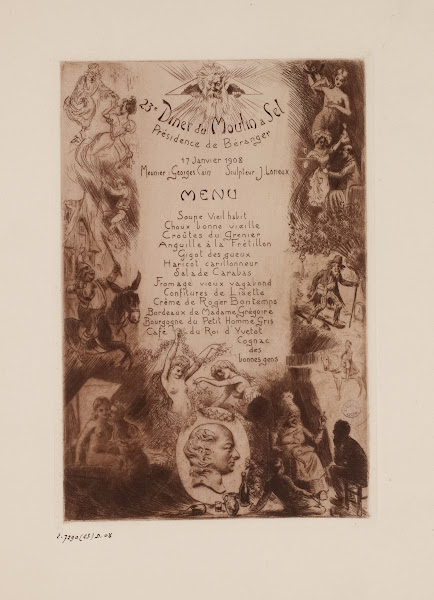 23e Diner du Moulin à Sel
Présidence de Béranger
17 Janvier 1908
Meunier: Georges Cain Sculpteur J. Lorieux
MENU
Soupe Vieil habit
Choux bonne vieille
Croûtes du Grenier
Anguille à la Frétillon
Gigot des gueux
Haricot carillonneur
Salade Carabas
Fromage vieux vagabond
Confitures de Lisette
Crème de Roger Bontemps
Bordeaux de Madame Grégoire
Bourgogne du Petit Homme Gris
Café du Roi d'Yvetot
Cognac
des
bonnes gens